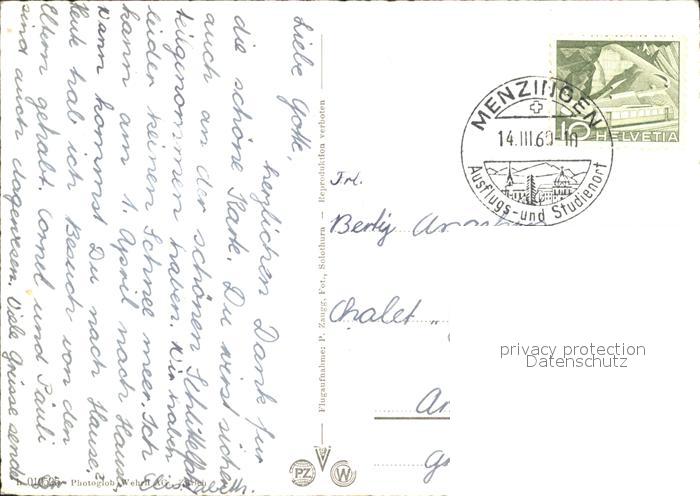 Liebe Gotte,
herzlichen Dank für
die schöne Karte. Du wirst sicher
auch an der schönen Schlittelfahrt
teilgenommen haben. Wir haben
leider keinen Schnee meer. Ich
kann am 1. April nach Hause
Wann kommst Du nach Hause?
Heute hab ich Besuch von den
Eltern gehabt. Cornel und Pauli
sind auch dagewesen. Viele Grüsse sendet
Dir Elisabeth.
Photoglob-Wehrli AG., Zürich
Flugaufnahme: P. Zaugg, Fot., Solothurn — Reproduktion verboten
PZ
W
10 HELVETIA
MENZINGEN
14.III.60-10
Ausflugs- und Studienort
Frl.
Berty
Chalet „
privacy protection
Datenschutz